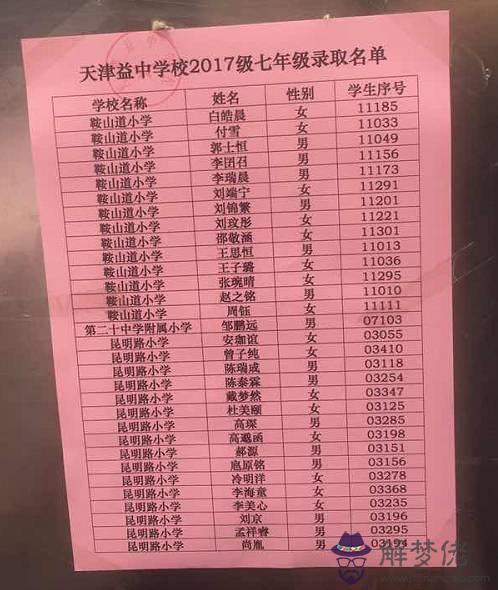 天津益中学校2017级七年级录取名单
学校名称 姓名 性别 学生序号
鞍山道小学 白皓晨 女 11185
鞍山道小学 付雪 女 11033
鞍山道小学 郭士恒 男 11049
鞍山道小学 李团召 男 11156
鞍山道小学 李瑞晨 男 11173
鞍山道小学 刘端宁 女 11291
鞍山道小学 刘锦繁 男 11201
鞍山道小学 刘玟彤 女 11221
鞍山道小学 邵敬涵 女 11301
鞍山道小学 王思恒 男 11013
鞍山道小学 王子璐 女 11036
鞍山道小学 张琬晴 女 11295
鞍山道小学 赵之铭 男 11010
鞍山道小学 周钰 女 11111
第二十中学附属小学 邹鹏远 男 07103
昆明路小学 安珈谊 女 03055
昆明路小学 曾子纯 女 03410
昆明路小学 陈瑞成 男 03118
昆明路小学 陈泰霖 男 03254
昆明路小学 戴梦然 女 03347
昆明路小学 杜美颐 女 03125
昆明路小学 高琛 男 03285
昆明路小学 高函 女 03198
昆明路小学 郝源 男 03151
昆明路小学 扈原铭 男 03156
昆明路小学 冷明洋 女 03278
昆明路小学 李海童 女 03368
昆明路小学 李美心 女 03235
昆明路小学 刘京 男 03196
昆明路小学 孟祥睿 男 03295
昆明路小学 尚胤 男 03194
解梦佬